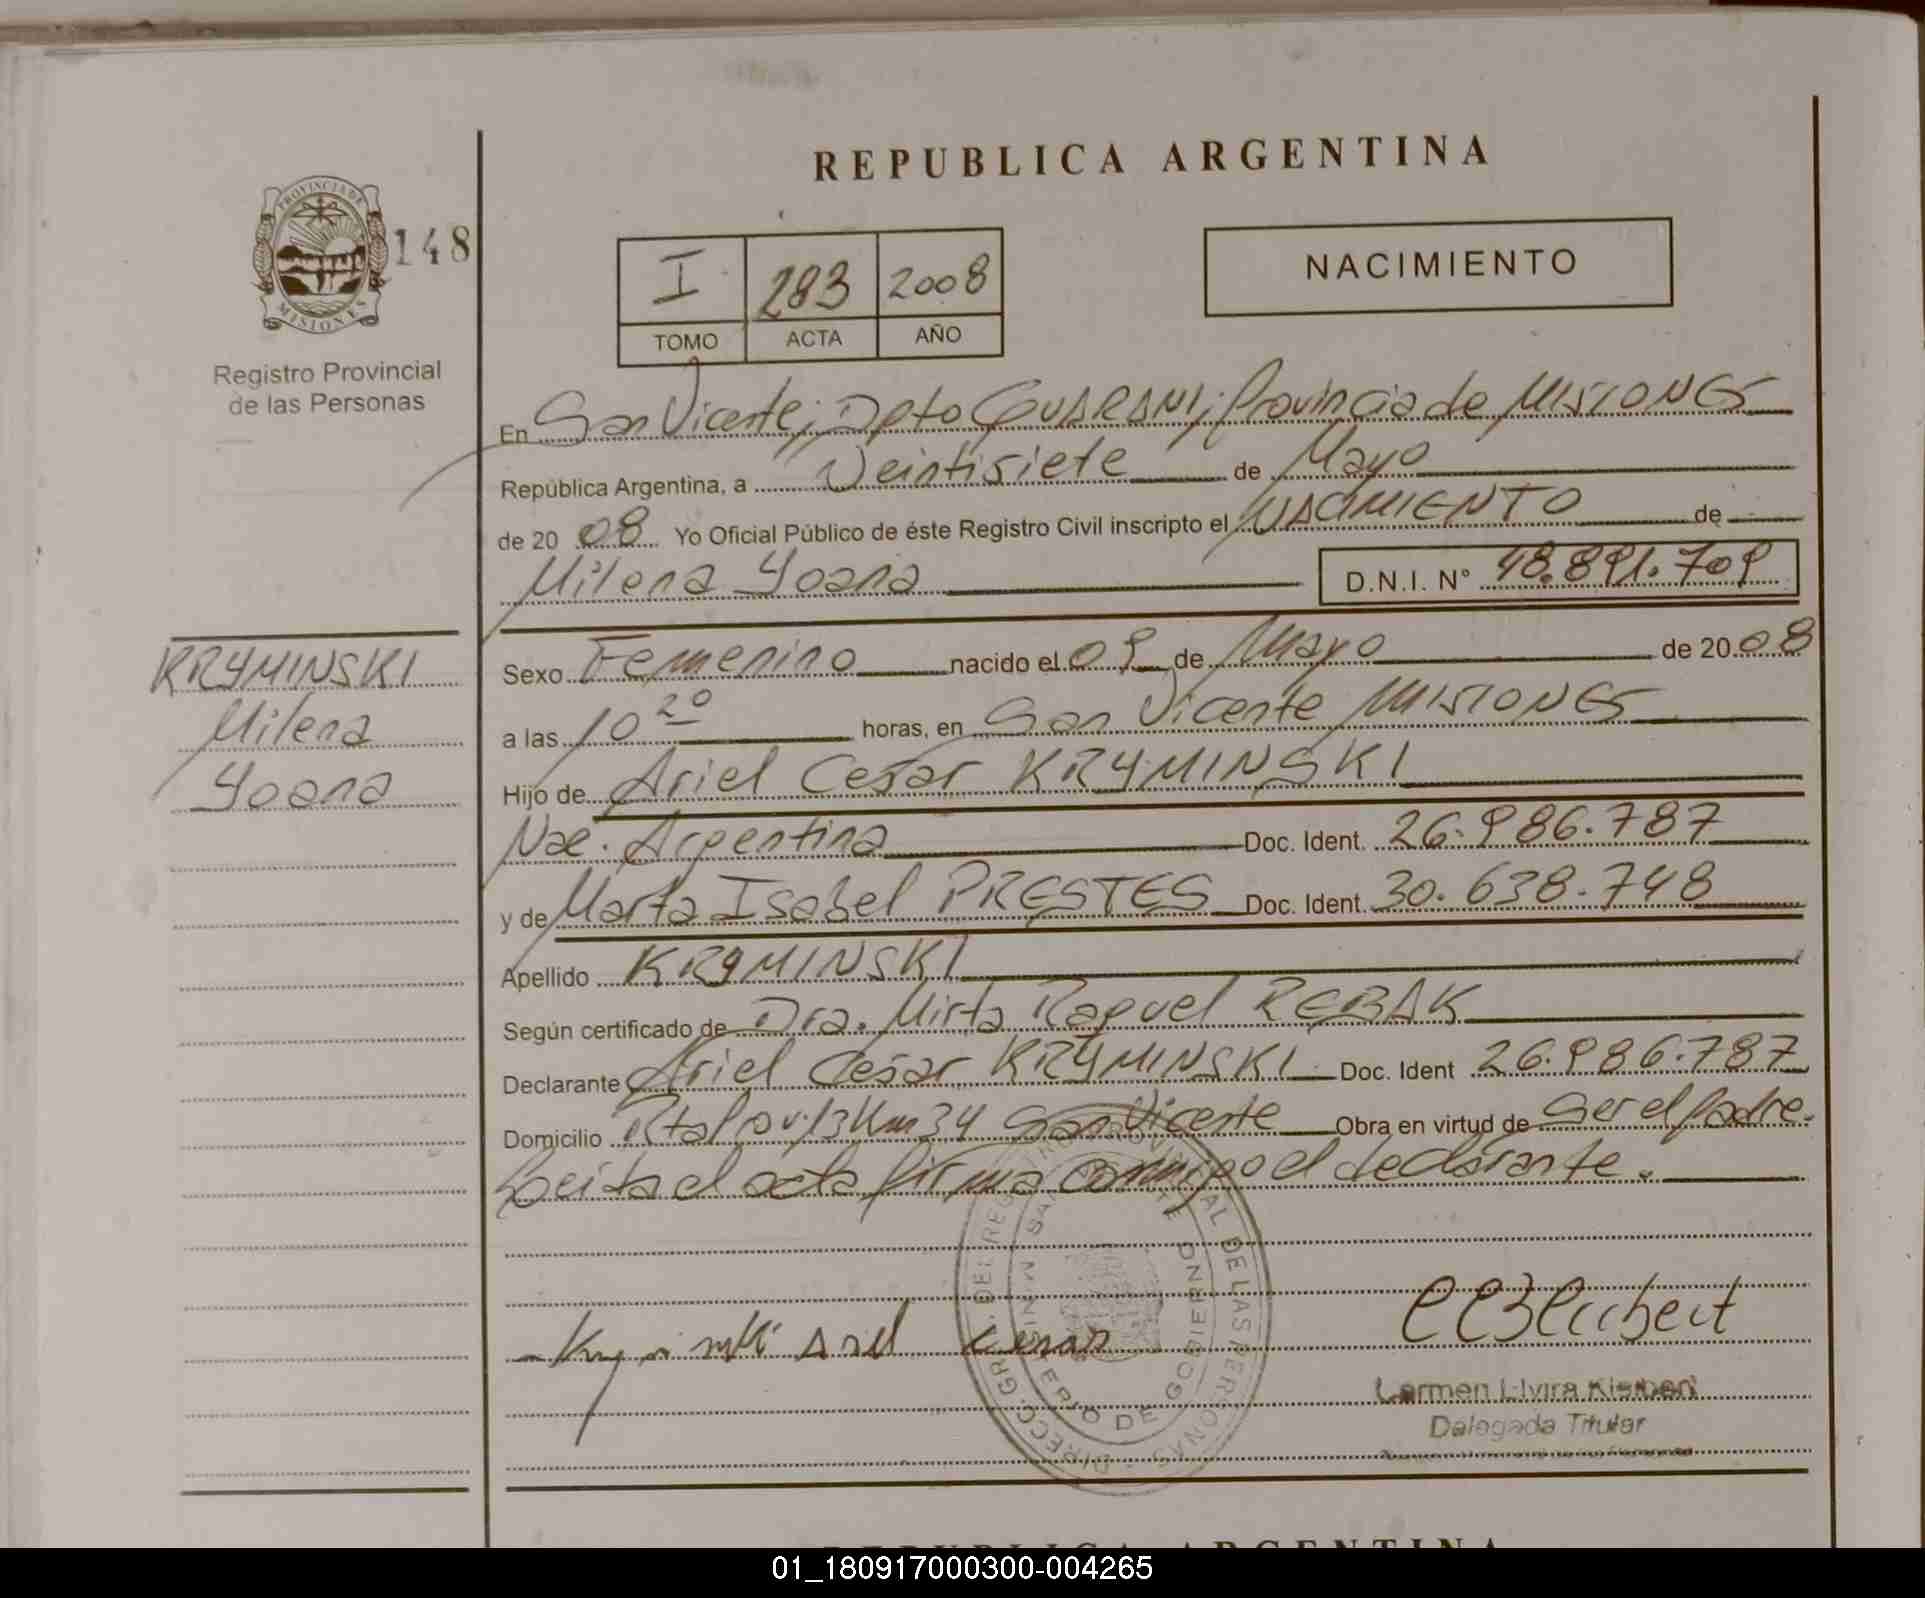 REPUBLICA ARGENTINA
PROVINCIA DE
MISIONES
148
I 283 2008
TOMO ACTA AÑO
NACIMIENTO
Registro Provincial
de las Personas
En San Vicente; Dpto GUARANI; Provincia de MISIONES
República Argentina, a Veintisiete de Mayo
de 2008 Yo Oficial Público de éste Registro Civil inscripto el NACIMIENTO de
Milena Yoana D.N.I. N° 48.891.709
KRYMINSKI
Milena
Yoana
Sexo Femenino nacido el 09 de Mayo de 2008
a las 10 20 horas, en San Vicente MISIONES
Hijo de Ariel Cesar KRYMINSKI
Nac. Argentina Doc. Ident. 26.986.787
y de Marta Isabel PRESTES Doc. Ident. 30.638.748
Apellido KRYMINSKI
Según certificado de Dra. Mirta Raquel REBAK
Declarante Ariel Cesar KRYMINSKI Doc. Ident 26.986.787
Domicilio Rta Prov. 13 Km 34 San Vicente Obra en virtud de Ser el padre.
Leida el acta firma conmigo el declarante.
Kryminski Ariel Cesar
Carmen Elvira
Delegada Titular
DIRECC. GR. DEL REGISTRO PROVINCIAL DE LAS PERSONAS
DE GOBIERNO
REPUBLICA ARGENTINA
01_180917000300-004265